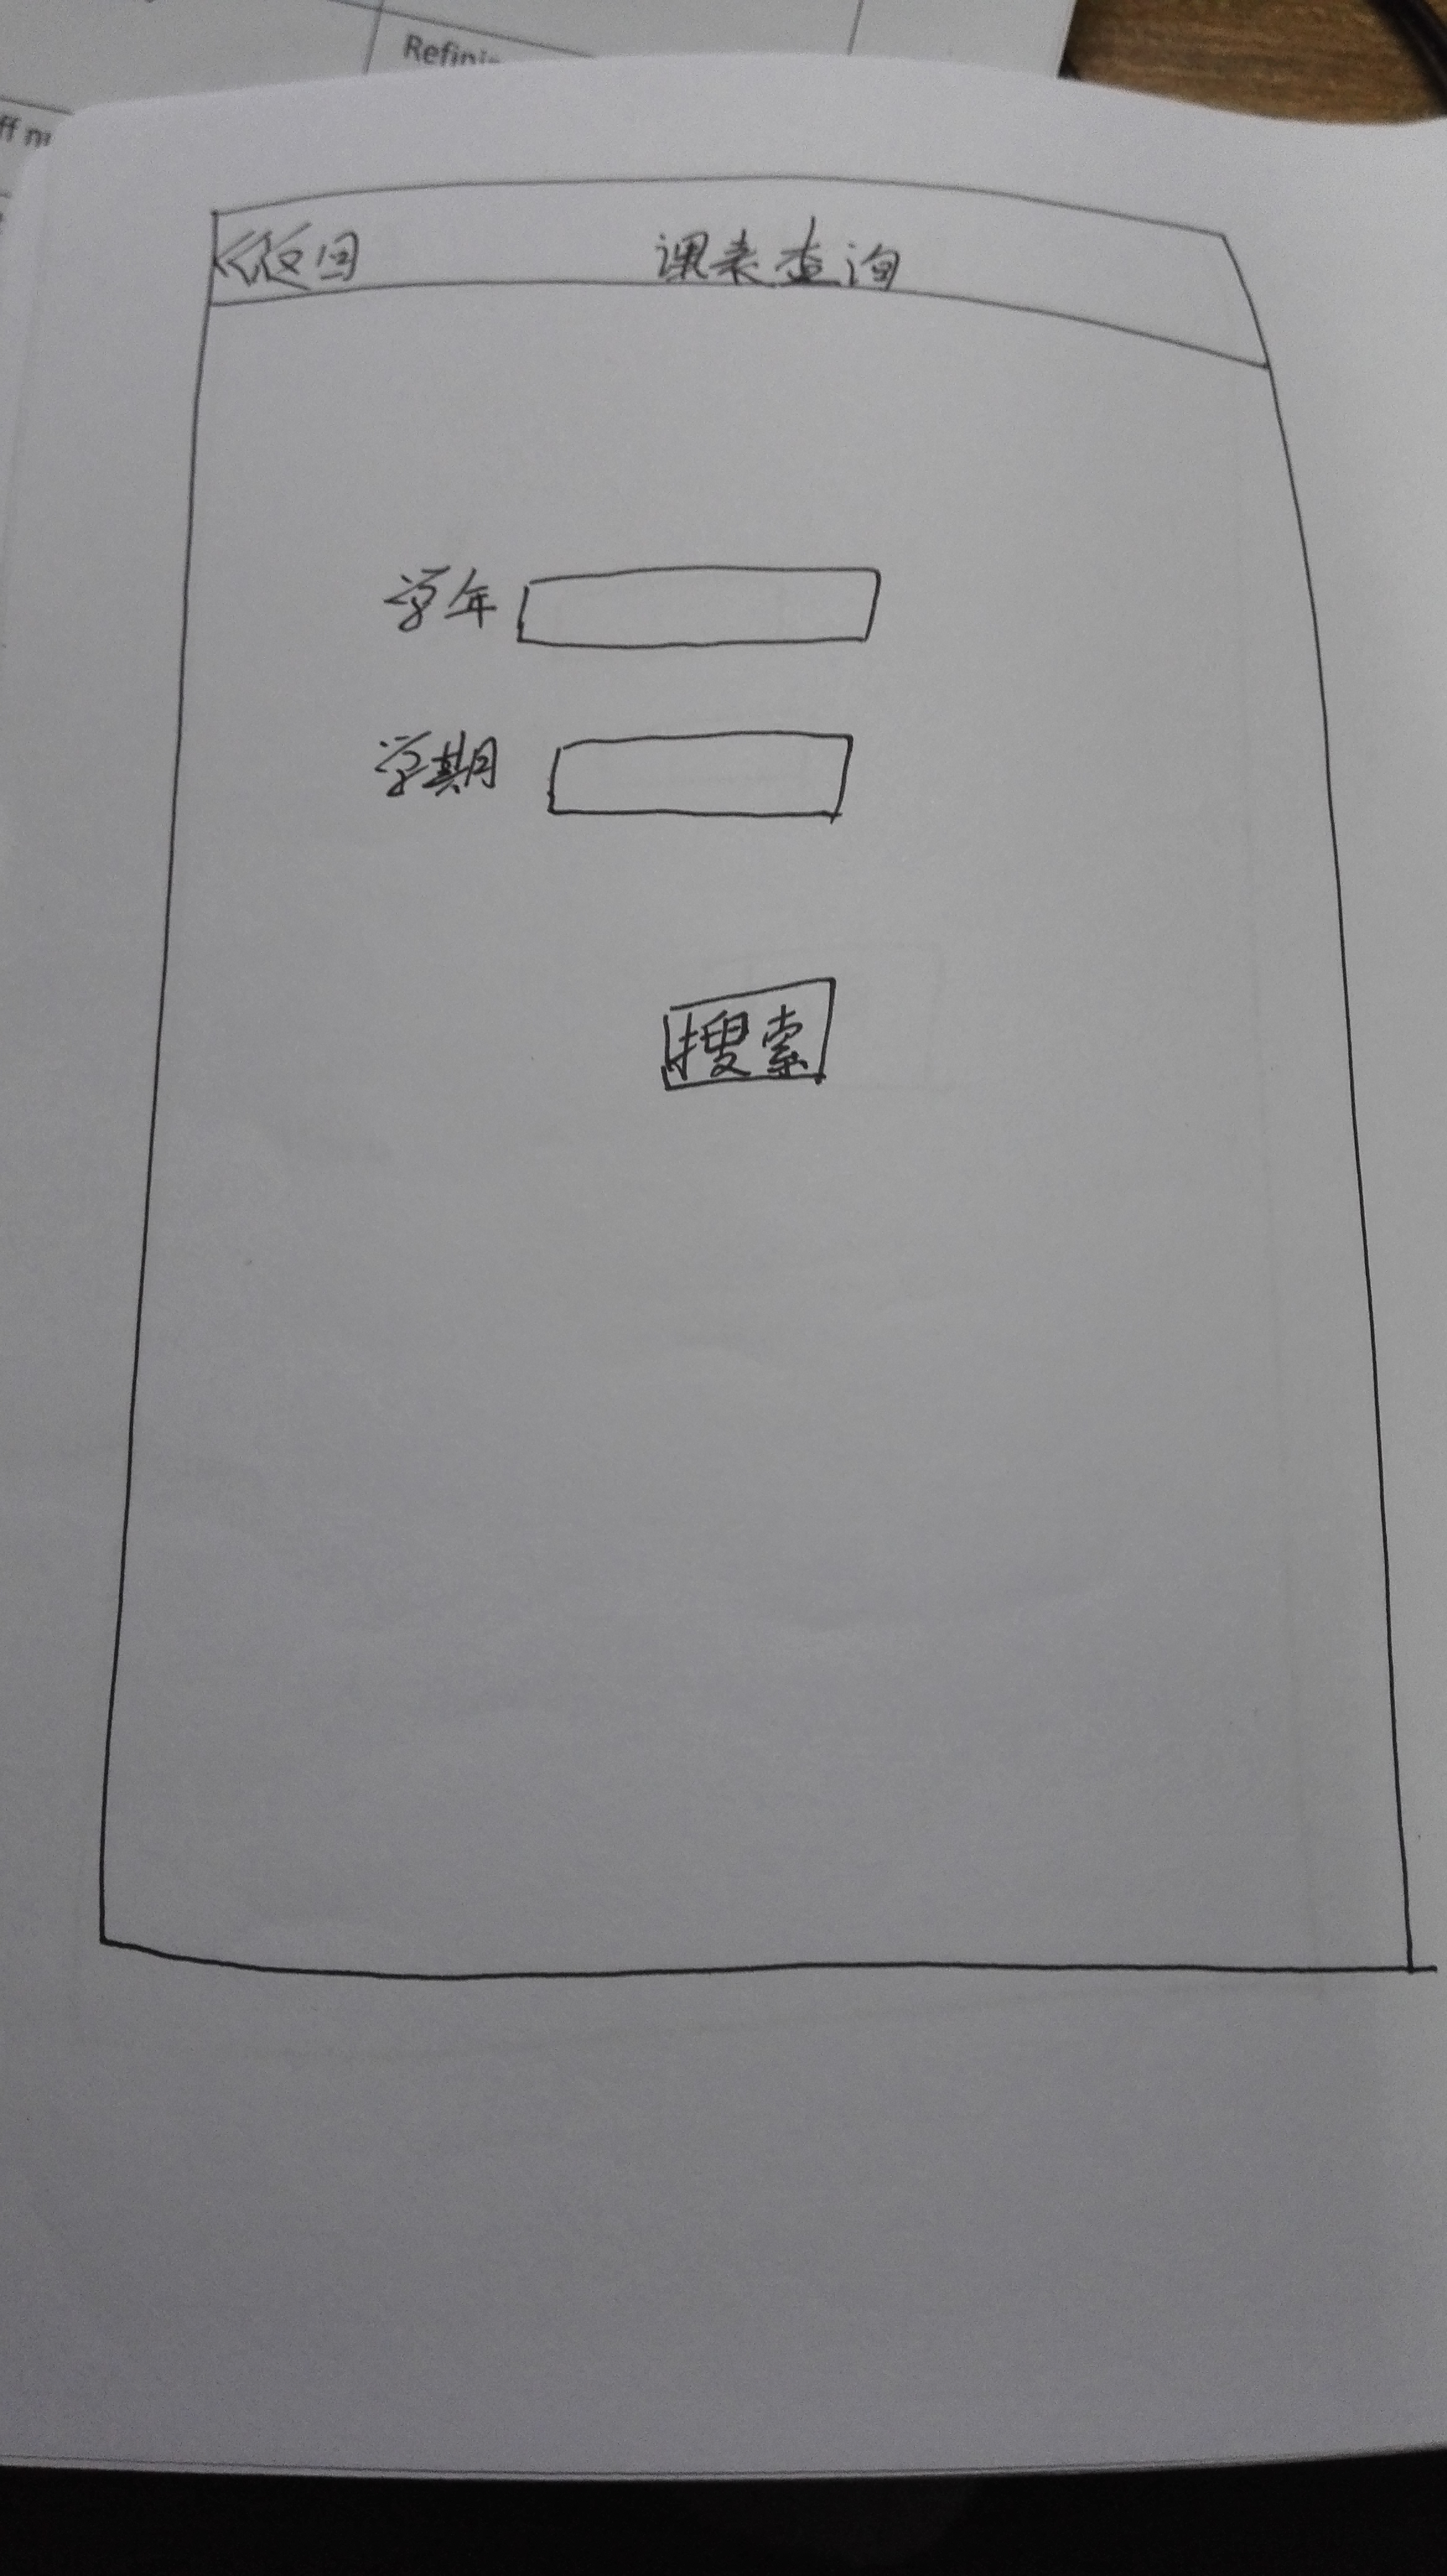 Refini
ff m
<<返回 课表查询
学年
学期
搜索